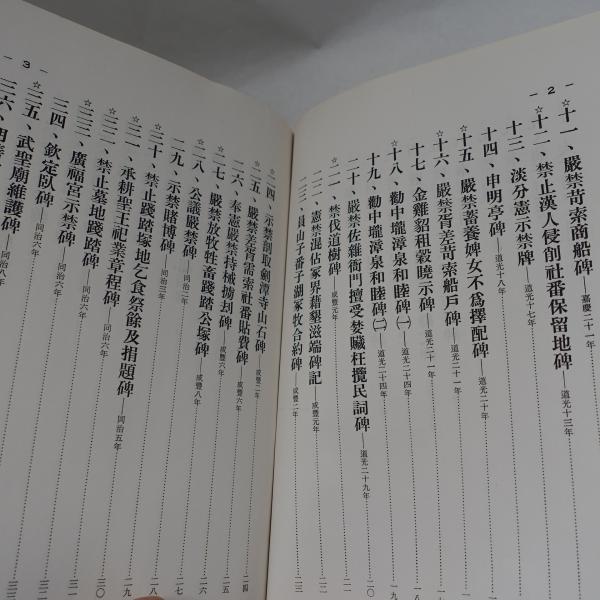 - 2 -
十一、嚴禁苛索商船碑——嘉慶二十一年
☆
十二、禁止漢人侵削社番保留地碑——道光十三年
十三、淡分憲示禁碑——道光十七年
十四、申明亭碑——道光十八年
☆
十五、嚴禁蓄養婢女不爲擇配碑——道光二十年
☆
十六、嚴禁胥差苛索船戶碑——道光二十一年
十七、金雞貂租穀曉示碑——道光二十一年
☆
十八、勸中壢漳泉和睦碑㈠——道光二十四年 一九
十九、勸中壢漳泉和睦碑㈡——道光二十四年 一九
二十、嚴禁佐雜衙門擅受婪贓枉攬民詞碑——道光二十九年 二〇
☆
二一、禁伐道樹碑——咸豐元年
二二、憲禁混佔冢界藉墾滋端碑記——咸豐元年 二二
☆
二三、員山子番子湖冢牧合約碑——咸豐二年 二三
- 3 -
☆
二四、示禁剖取劍潭寺山石碑——咸豐二年 二四
☆
二五、嚴禁差胥需索社番貼費碑——咸豐六年 二四
二六、奉憲嚴禁持械 刦碑——咸豐六年 二五
☆
二七、嚴禁放牧牲畜踐踏公塚碑——咸豐八年 二六
二八、公議嚴禁碑——同治二年 二六
二九、示禁賭博碑——同治三年 二七
☆
三十、禁止踐踏塚地乞食祭餘及捐題碑——同治五年 二八
三一、承耕聖王祀業章程碑——同治六年 二九
三二、禁止墓地踐踏碑——同治六年 三〇
☆
三三、廣福宮示禁碑——同治六年 三一
三四、欽定臥碑——同治六年 三二
☆
三五、武聖廟維護碑——同治八年 三三
☆
三六、